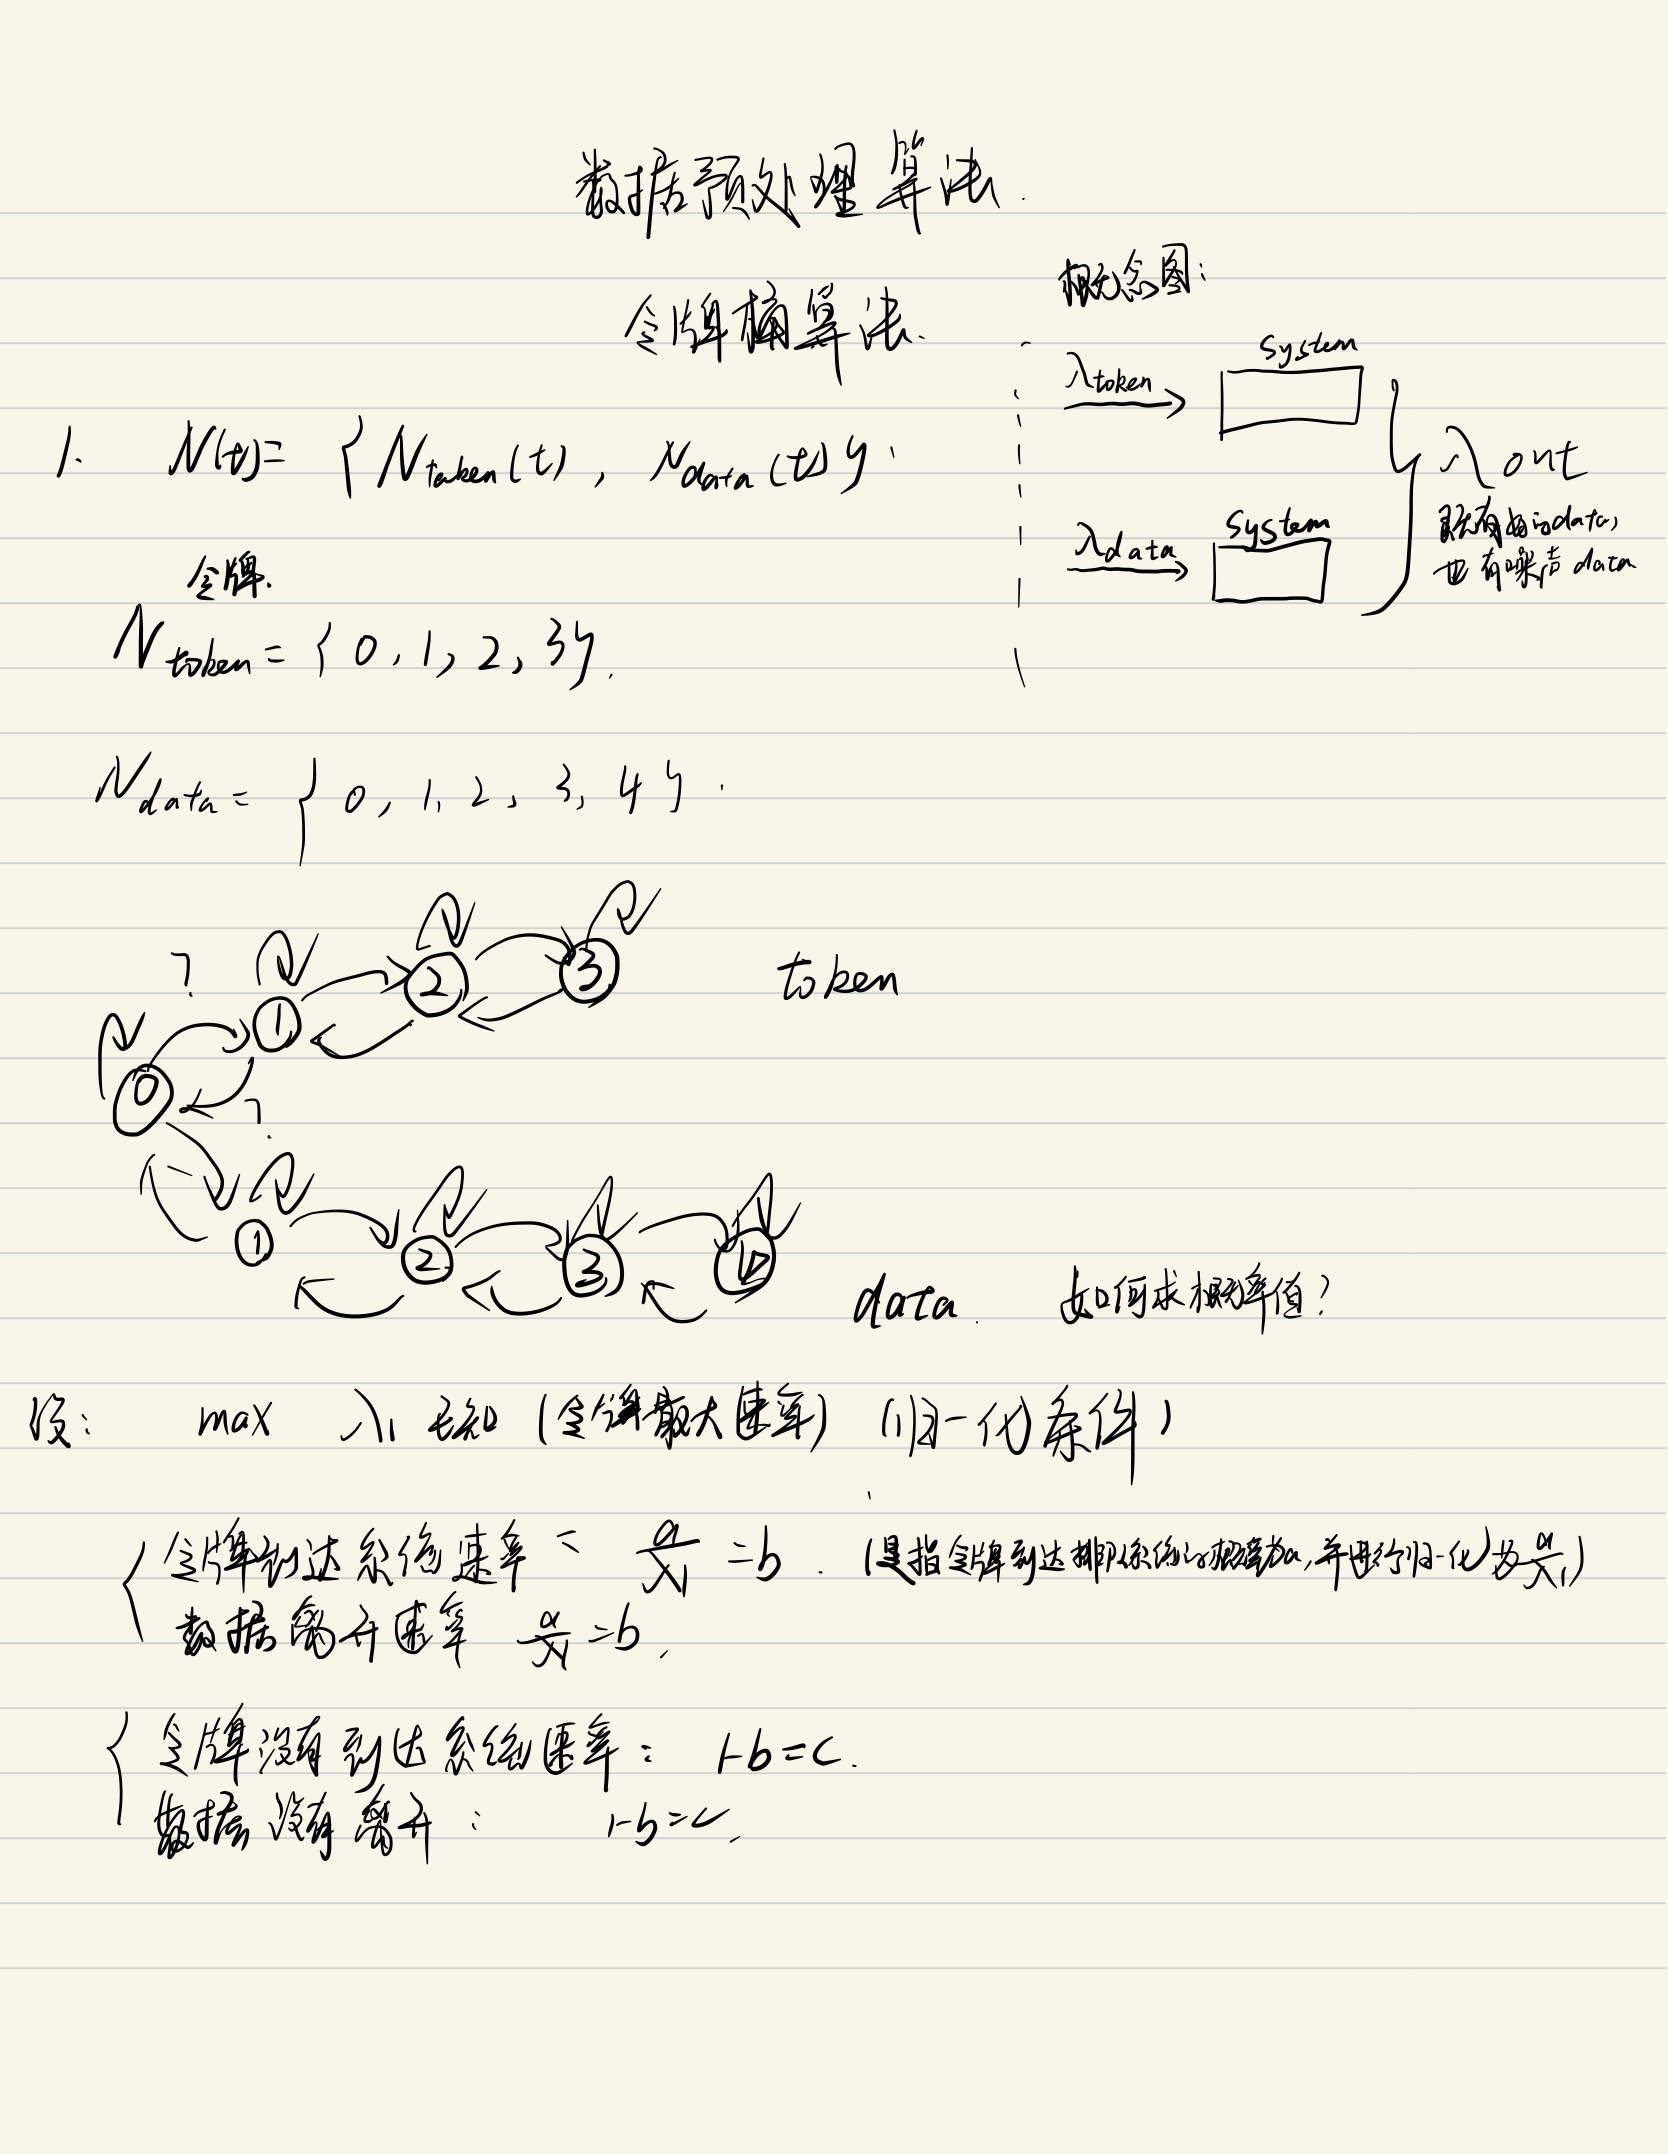 数据预处理算法.
令牌桶算法.
概念图:
λtoken
System
λdata
System
λout
既有好的data,
也有噪声data
1. N(t)= {Ntoken(t), Ndata(t)}.
令牌.
Ntoken = {0,1,2,3}.
Ndata = {0,1,2,3,4}.
?
0
1
2
3
token
?
1
2
3
4
data. 如何求概率值?
设: max λ1 已知 (令牌最大速率) (归一化条件)
令牌到达系统速率 = a/λ1 = b. (是指令牌到达排队系统的概率为a,并进行归一化为a/λ1)
数据离开速率 a/λ1 = b.
令牌没有到达系统速率: 1-b=c.
数据没有离开: 1-b=c.